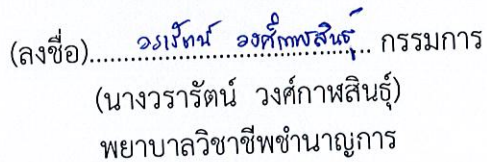 (ลงชื่อ).....วรารัตน์ วงศ์กาฬสินธุ์..... กรรมการ
(นางวรารัตน์ วงศ์กาฬสินธุ์)
พยาบาลวิชาชีพชำนาญการ